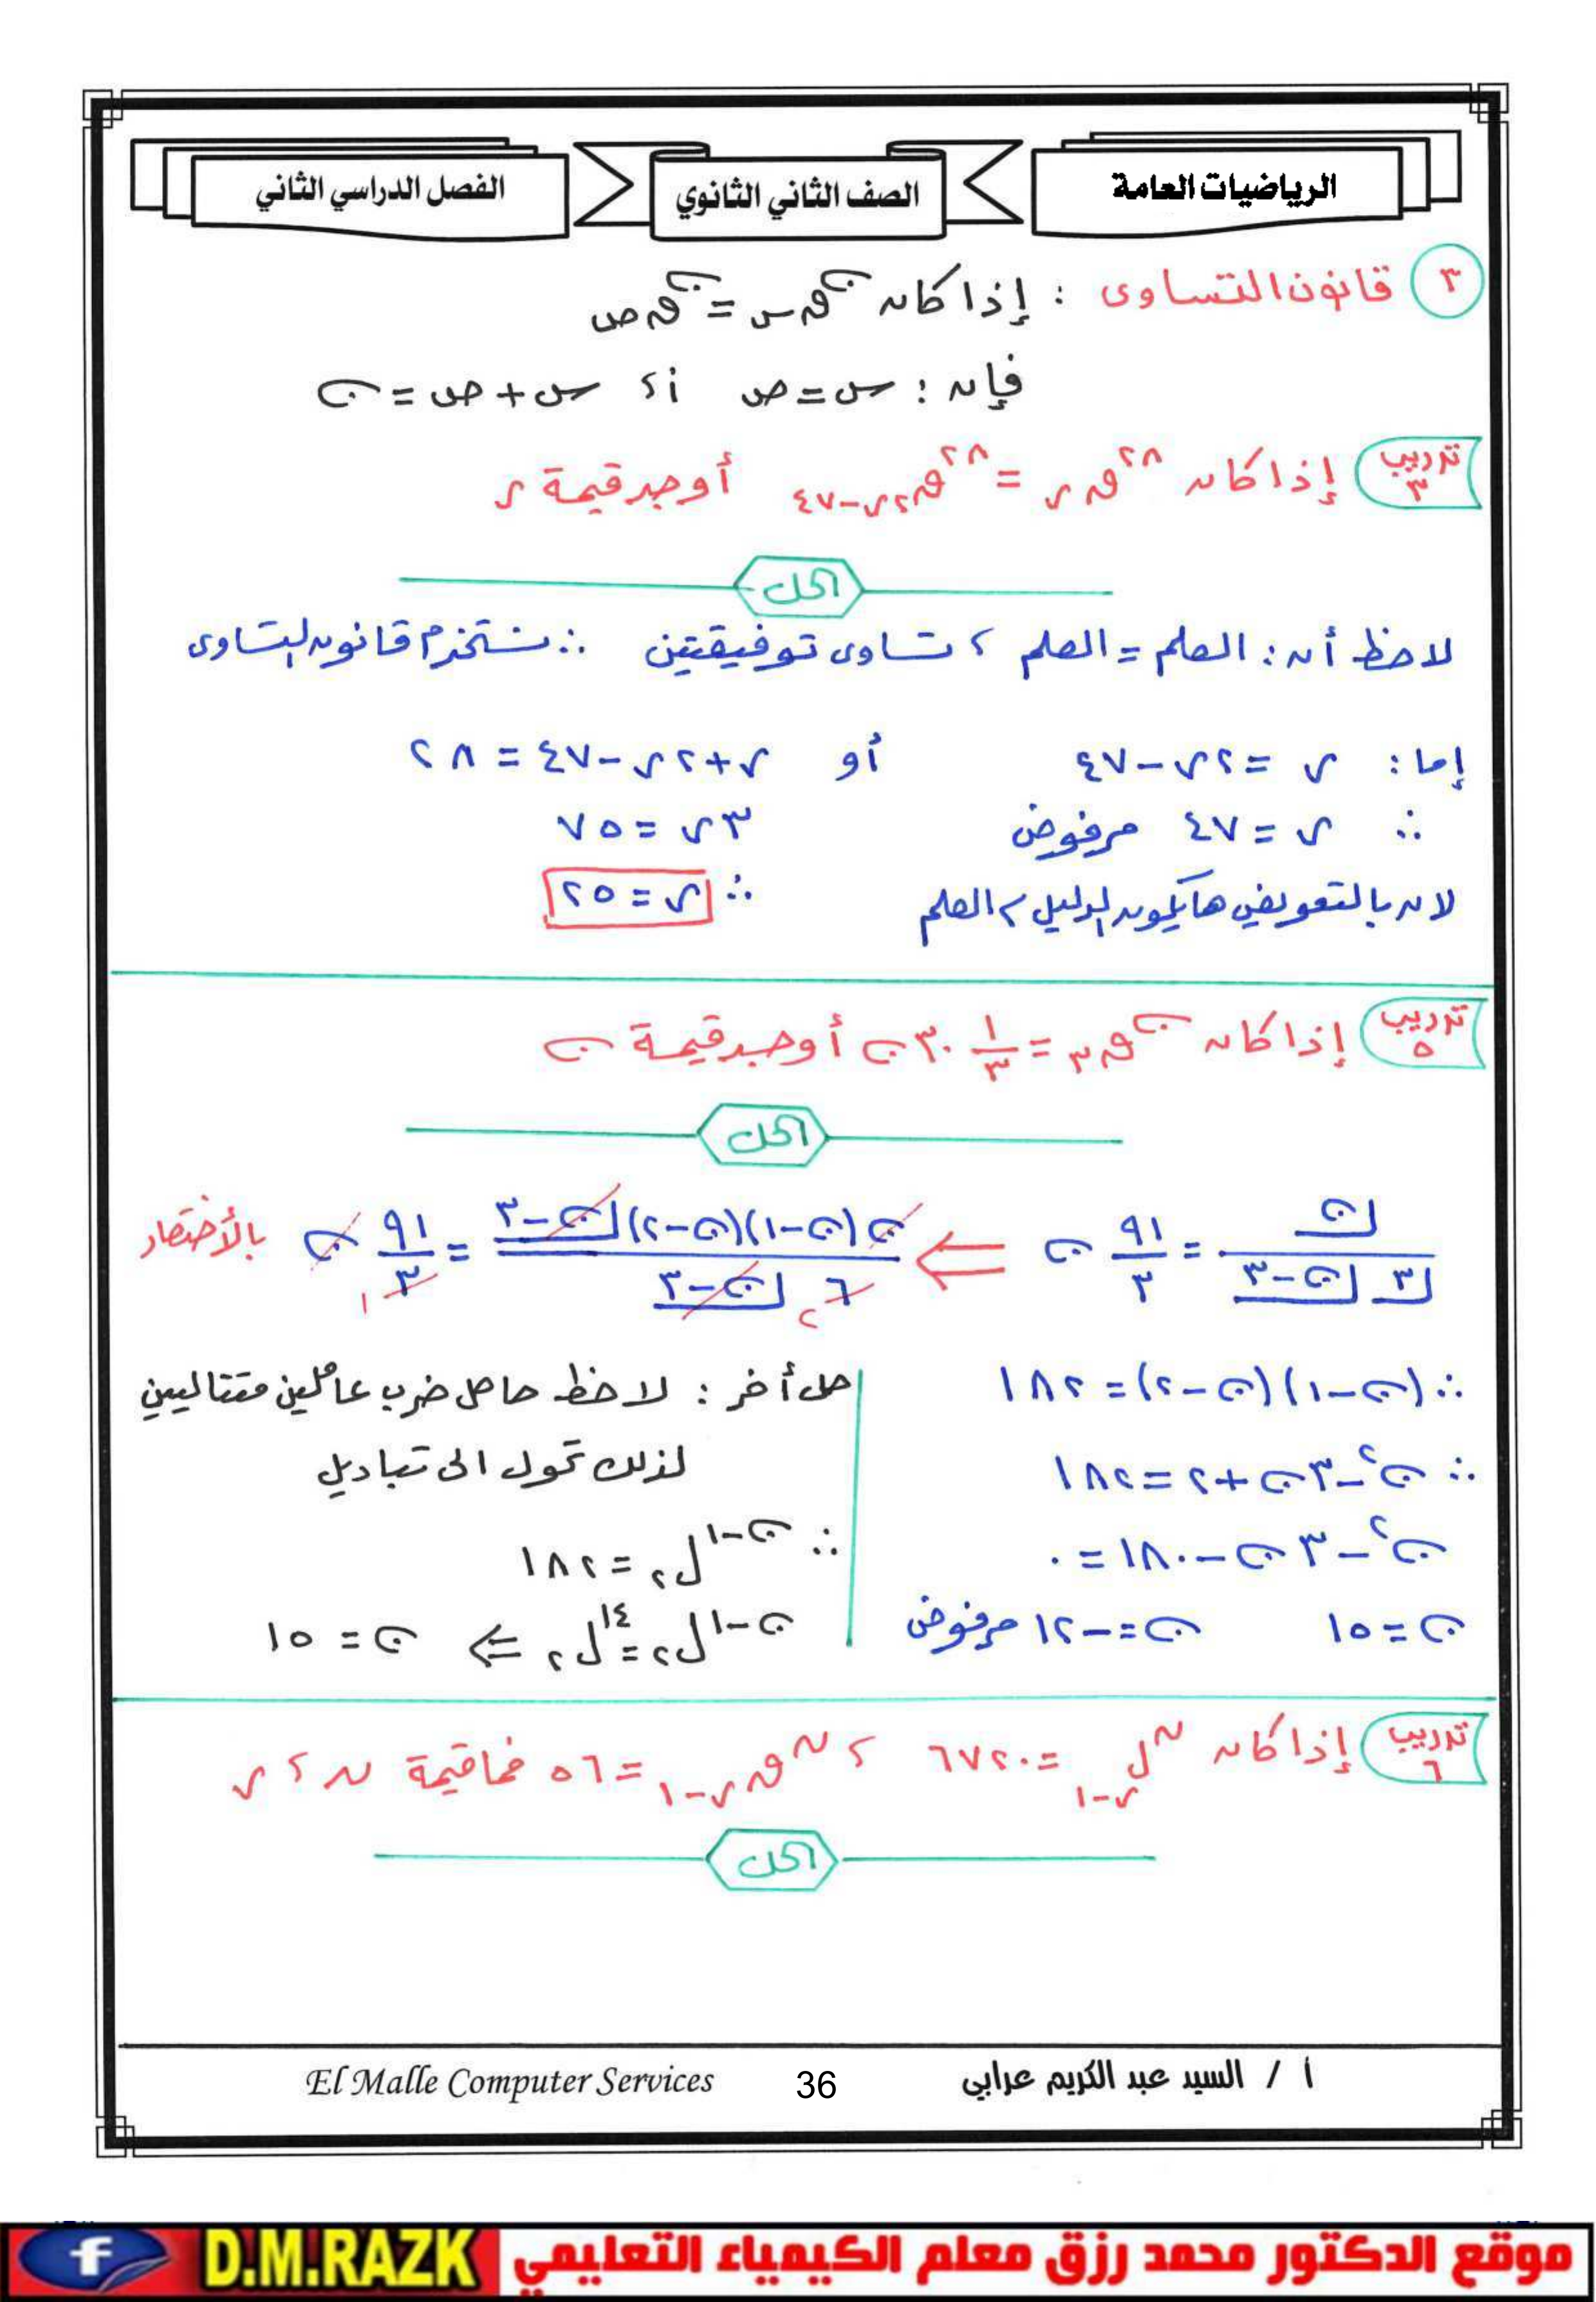 الرياضيات العامة
الصف الثاني الثانوي
الفصل الدراسي الثاني
٣ قانون التساوى : إذا كان ن ق س = ن ق ص
فإن : س = ص أ، س + ص = ن
تدريب ٣ إذا كان ٢٨ ق ر = ٢٨ ق ٢ر-٤٧ أوجد قيمة ر
الحل
لاحظ أن : العلم = العلم ، تساوى توفيقتين ∴ نستخدم قانون التساوى
إما : ر = ٢ر - ٤٧ أو ر + ٢ر - ٤٧ = ٢٨
∴ ر = ٤٧ مرفوض ٣ر = ٧٥
لان بالتعويض هايكون الدليل > العلم ∴ ر = ٢٥
تدريب ٥ إذا كان ن ق ٣ = ١/٣ ٣٠ ن أوجد قيمة ن
الحل
ن / ٣ ن-٣ = ٩١/٣ ن ⇐ ن(ن-١)(ن-٢) ن-٣ / ٦ ن-٣ = ٩١/٣ ن بالأختصار
٢ ١
∴ (ن-١)(ن-٢) = ١٨٢
∴ ن² - ٣ن + ٢ = ١٨٢
ن² - ٣ن - ١٨٠ = ٠
ن = ١٥ ن = -١٢ مرفوض
حل أخر : لاحظ حاصل ضرب عاملين متتاليين
لذلك تحول الى تباديل
∴ ن-١ ل ٢ = ١٨٢
ن-١ ل ٢ = ١٤ ل ٢ ⇐ ن = ١٥
تدريب ٦ إذا كان ن ل ر-١ = ٦٧٢٠ ، ن ق ر-١ = ٥٦ فما قيمة ن ، ر
الحل
أ / السيد عبد الكريم عرابي
36
El Malle Computer Services
موقع الدكتور محمد رزق معلم الكيمياء التعليمي
D.M.RAZK
f